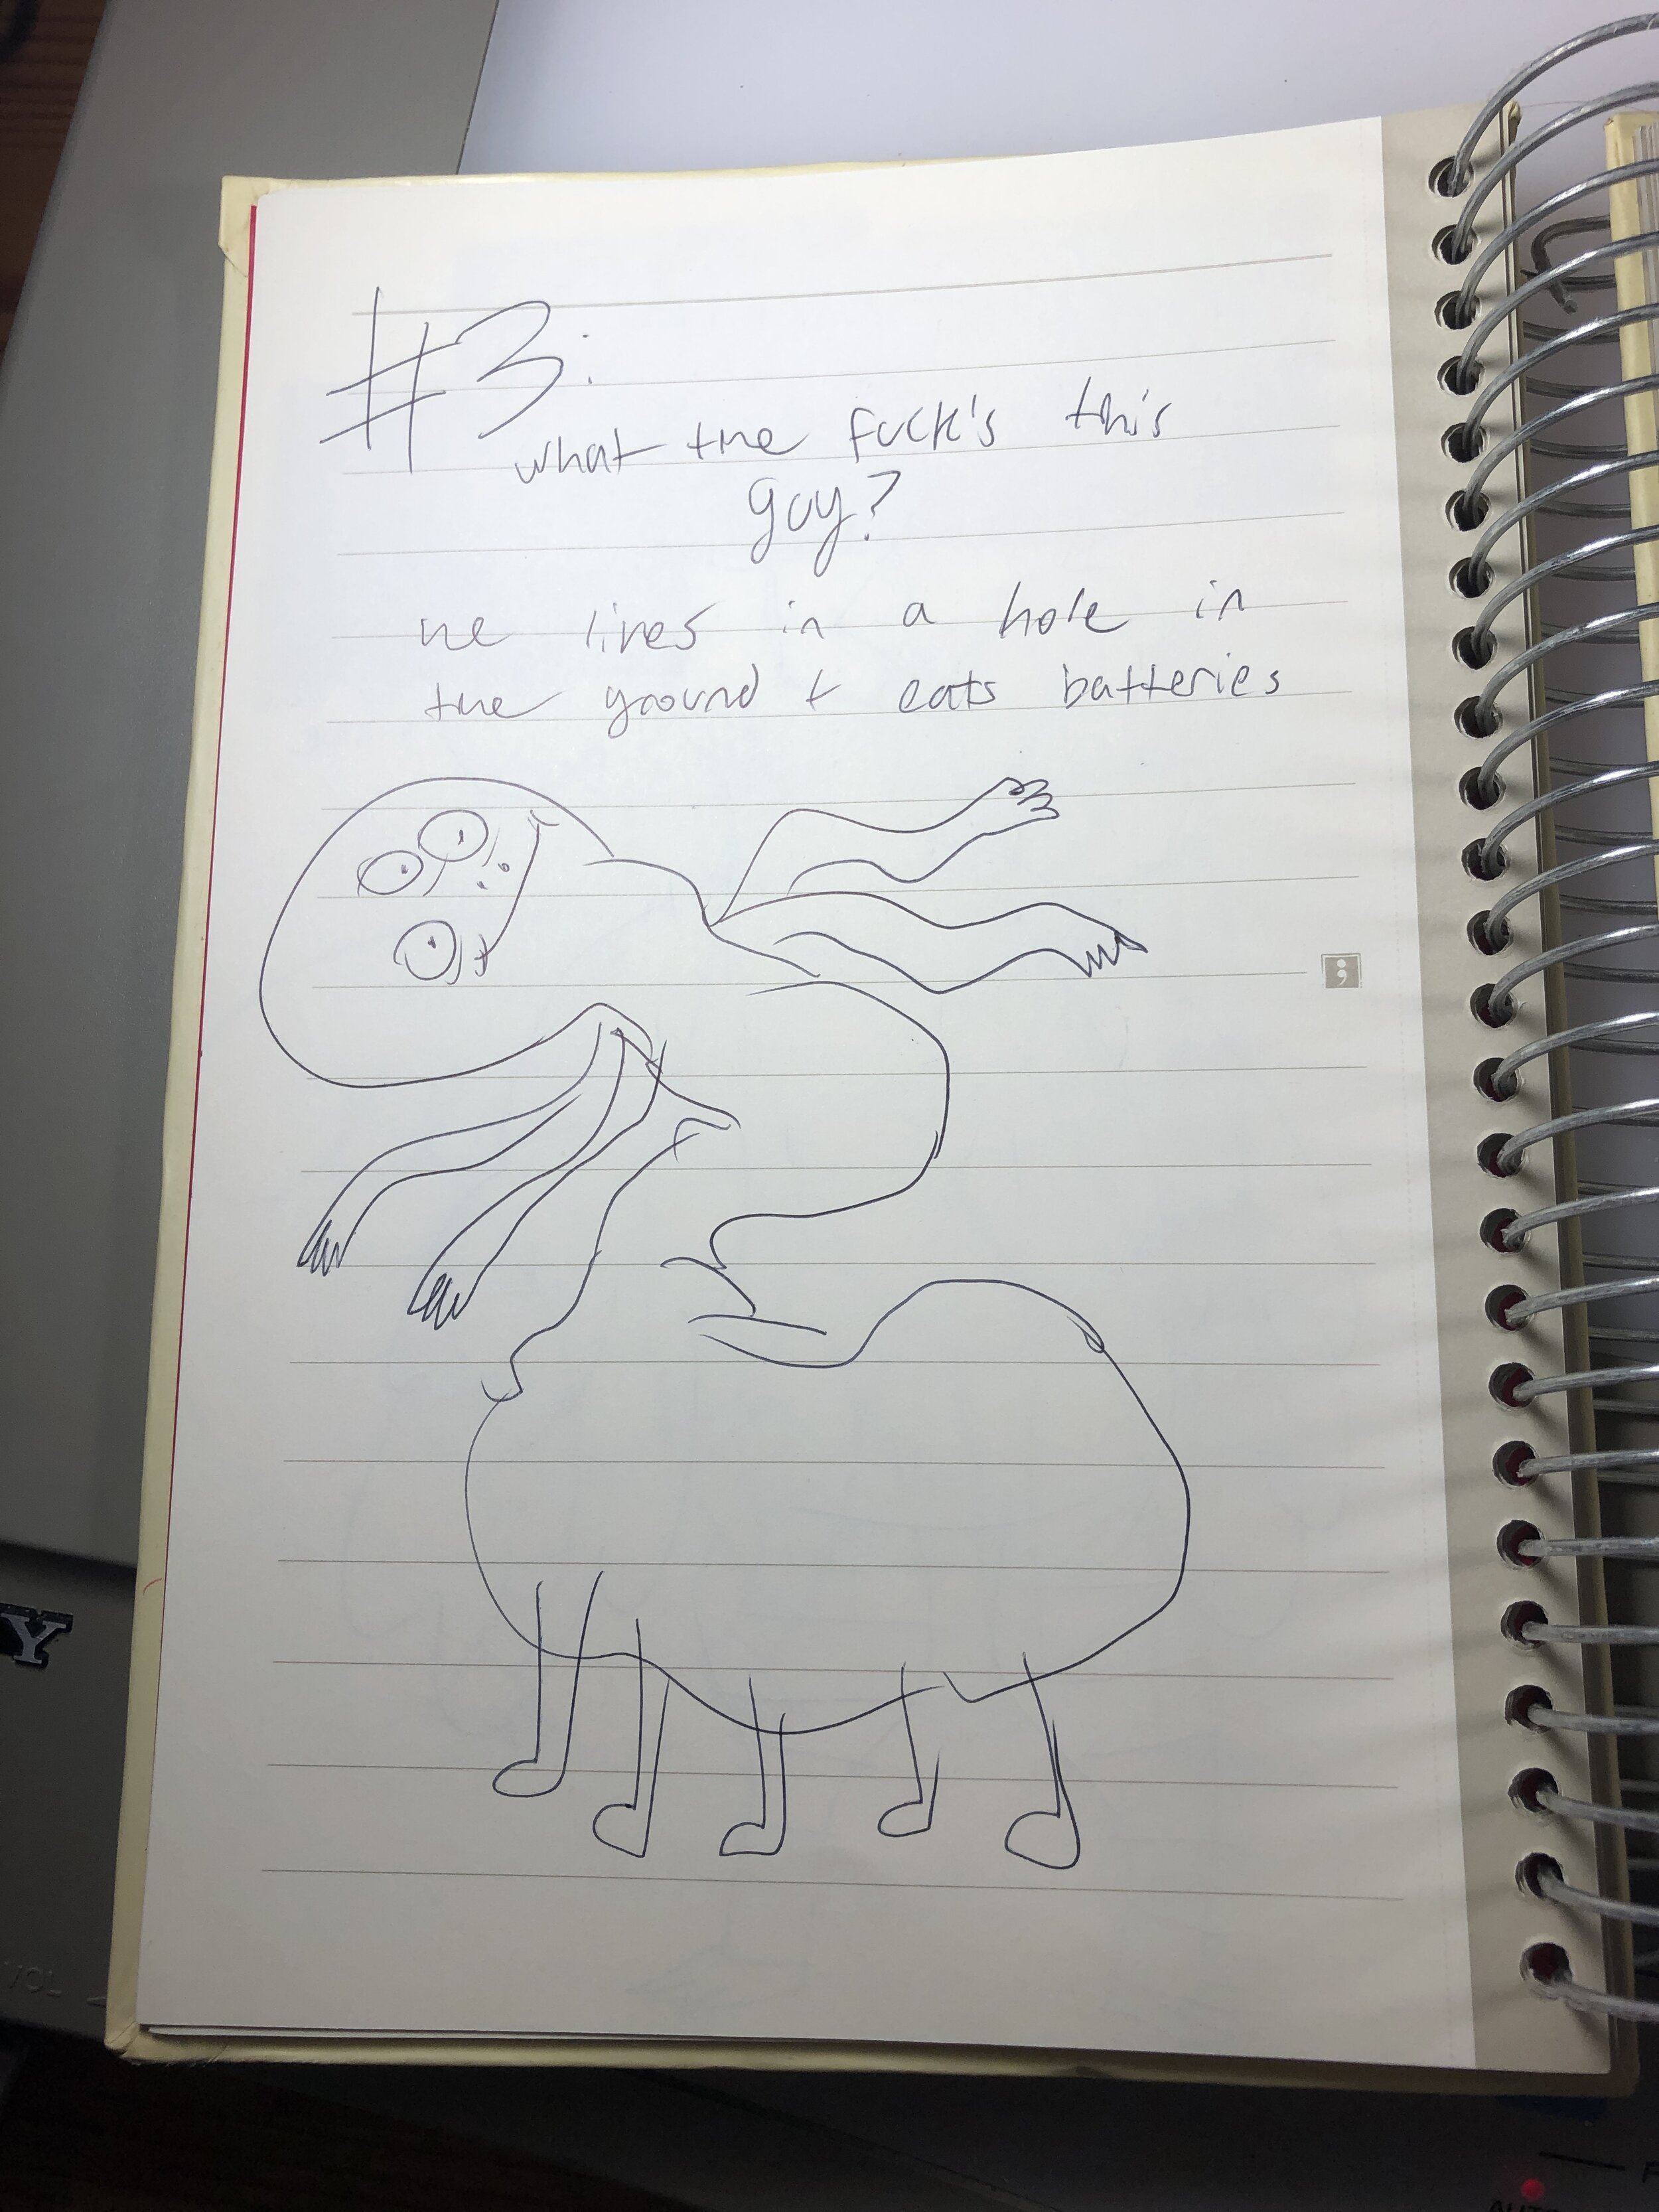 #3:
what the fuck's this
guy?
he lives in a hole in
the ground + eats batteries
;
Y
VOL
AUTO